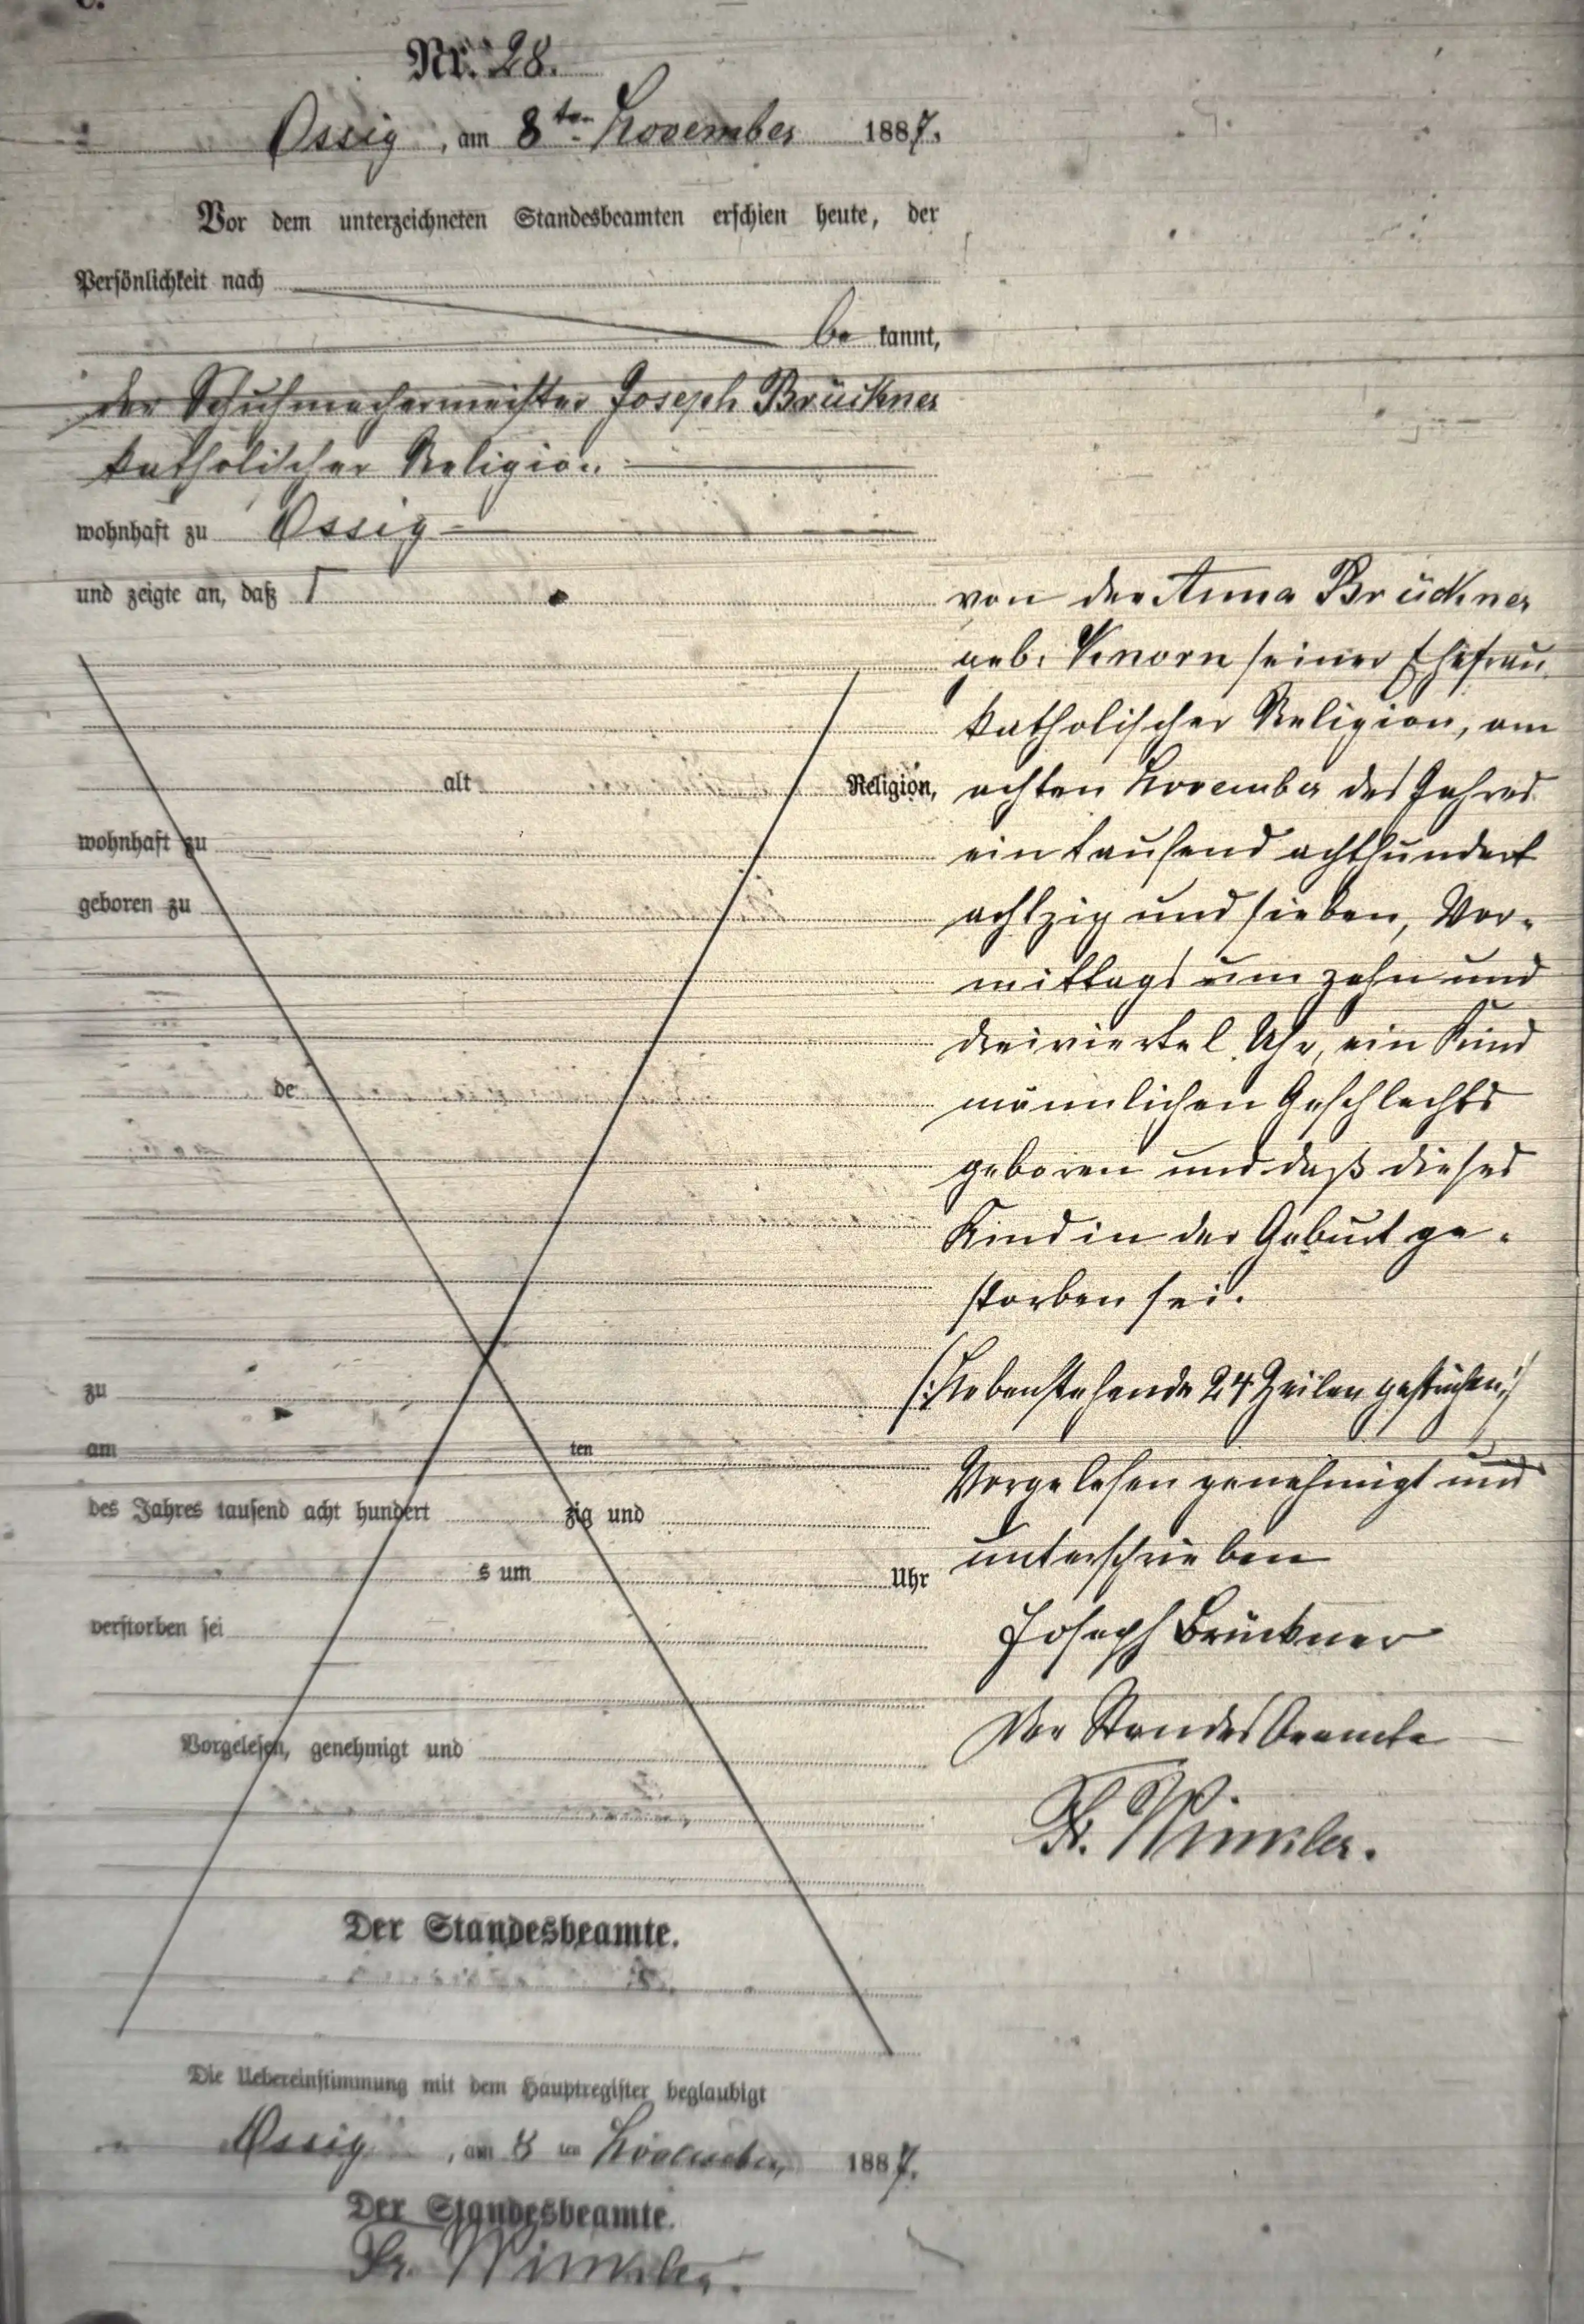 C.
Nr. 28.
Ossig, am 8ten November 1887.
Vor dem unterzeichneten Standesbeamten erschien heute, der
Persönlichkeit nach
be kannt,
der Schuhmachermeister Joseph Brückner
katholischer Religion
wohnhaft zu Ossig
und zeigte an, daß Γ
von der Anna Brückner
geb. Knorn seiner Ehefrau
katholischer Religion, am
achten November des Jahres
ein tausend achthundert
achtzig und sieben, Vor-
mittags um zehn und
dreiviertel Uhr, ein Kind
männlichen Geschlechts
geboren und daß dieses
Kind in der Geburt ge-
storben sei.
/: Nebenstehende 24 Zeilen gestrichen :/
Vorgelesen genehmigt und
unterschrieben
Joseph Brückner
Der Standesbeamte
Fr. Winkler.
alt Religion,
wohnhaft zu
geboren zu
de
zu
am ten
des Jahres tausend acht hundert zig und
s um Uhr
verstorben sei
Vorgelesen, genehmigt und
Der Standesbeamte.
Die Uebereinstimmung mit dem Hauptregister beglaubigt
Ossig, am 8 ten November 1887.
Der Standesbeamte.
Fr. Winkler.